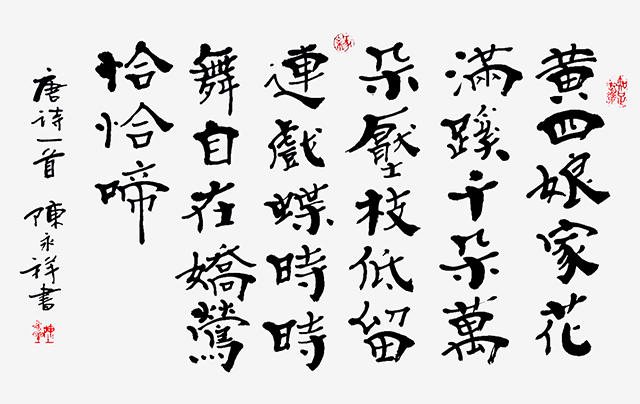 黄四娘家花
满蹊千朵萬
朵壓枝低留
連戲蝶時時
舞自在嬌鶯
恰恰啼
唐诗一首 陳永祥書